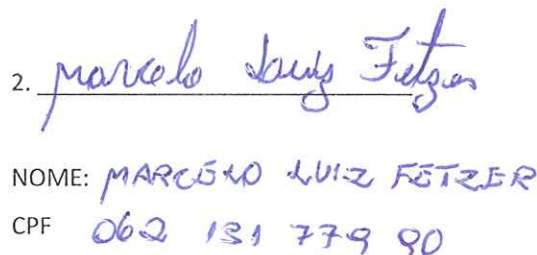 2. Marcelo Luiz Fetzer
NOME: MARCELO LUIZ FETZER
CPF 062 131 779 90